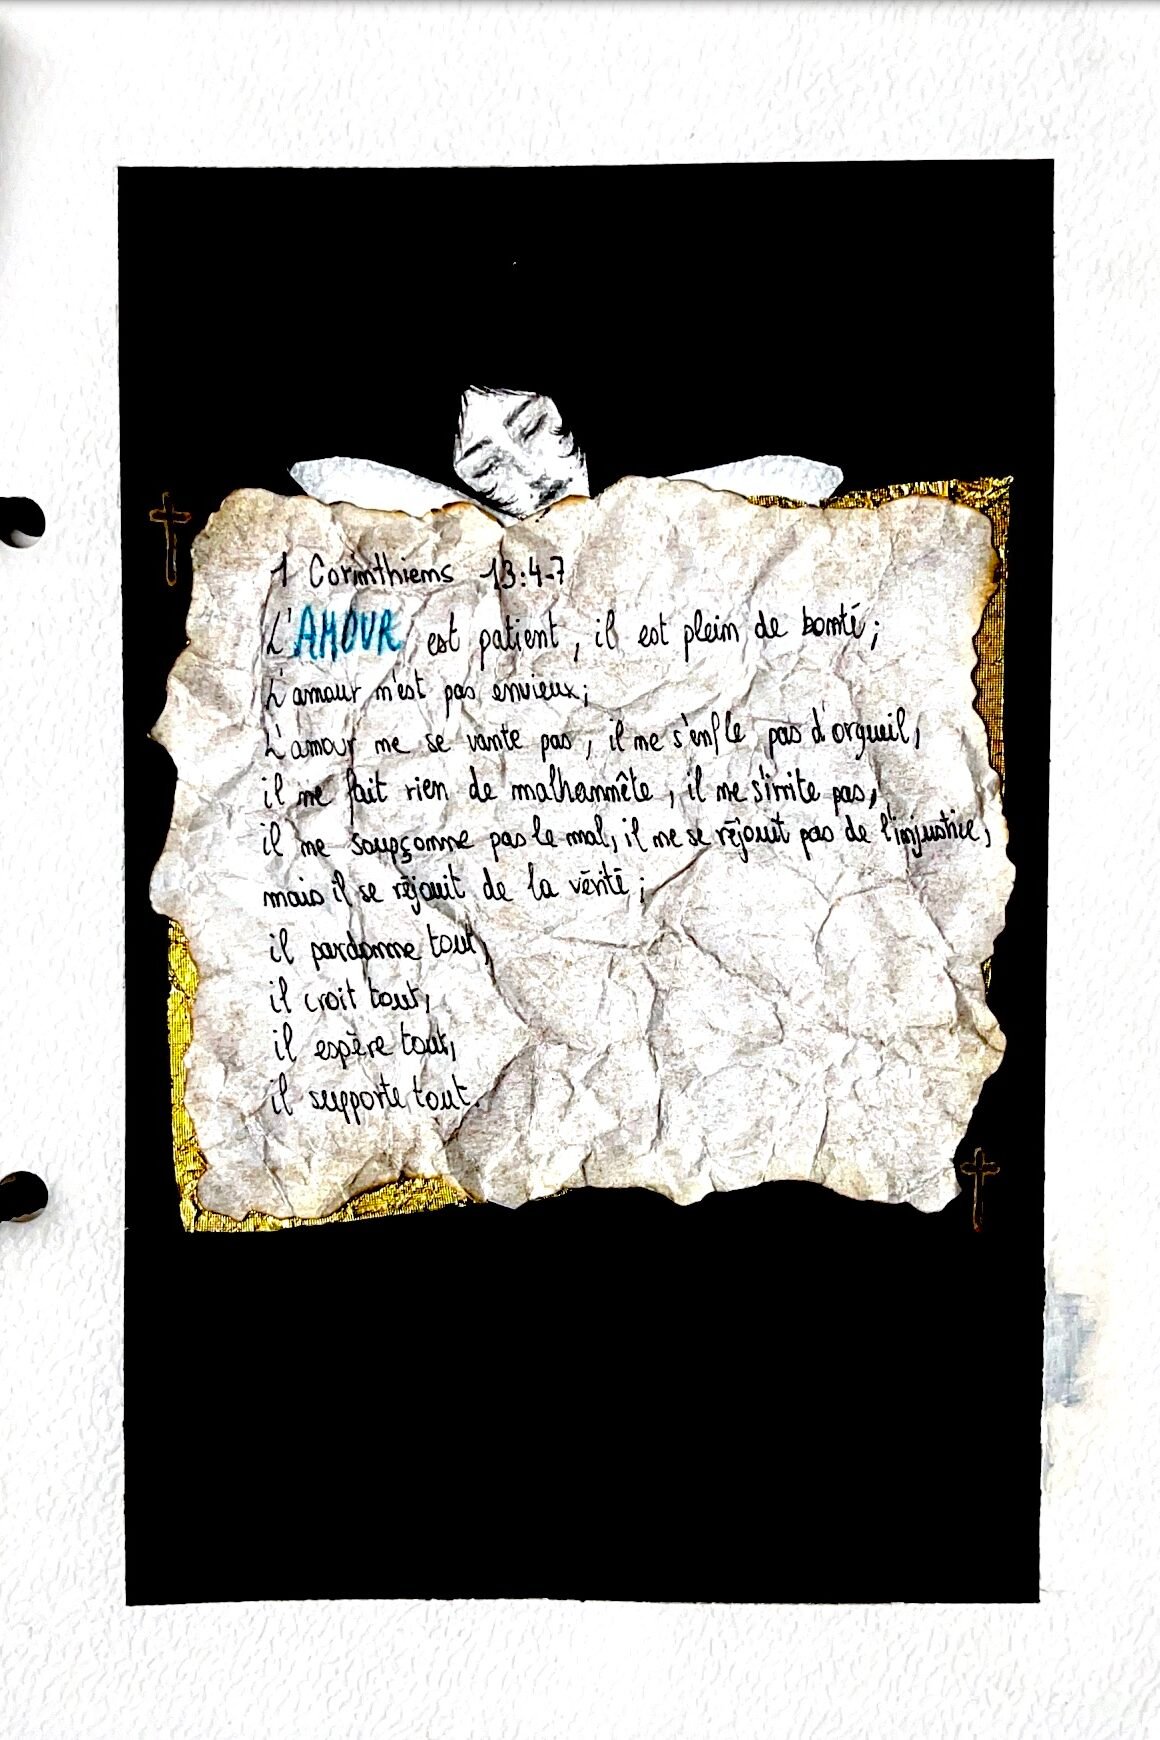 1 Corinthiens 13:4-7
L'AMOUR est patient, il est plein de bonté;
L'amour n'est pas envieux;
L'amour ne se vante pas, il ne s'enfle pas d'orgueil,
il ne fait rien de malhonnête, il ne s'irrite pas,
il ne soupçonne pas le mal, il ne se réjouit pas de l'injustice,
mais il se réjouit de la vérité;
il pardonne tout,
il croit tout,
il espère tout,
il supporte tout.